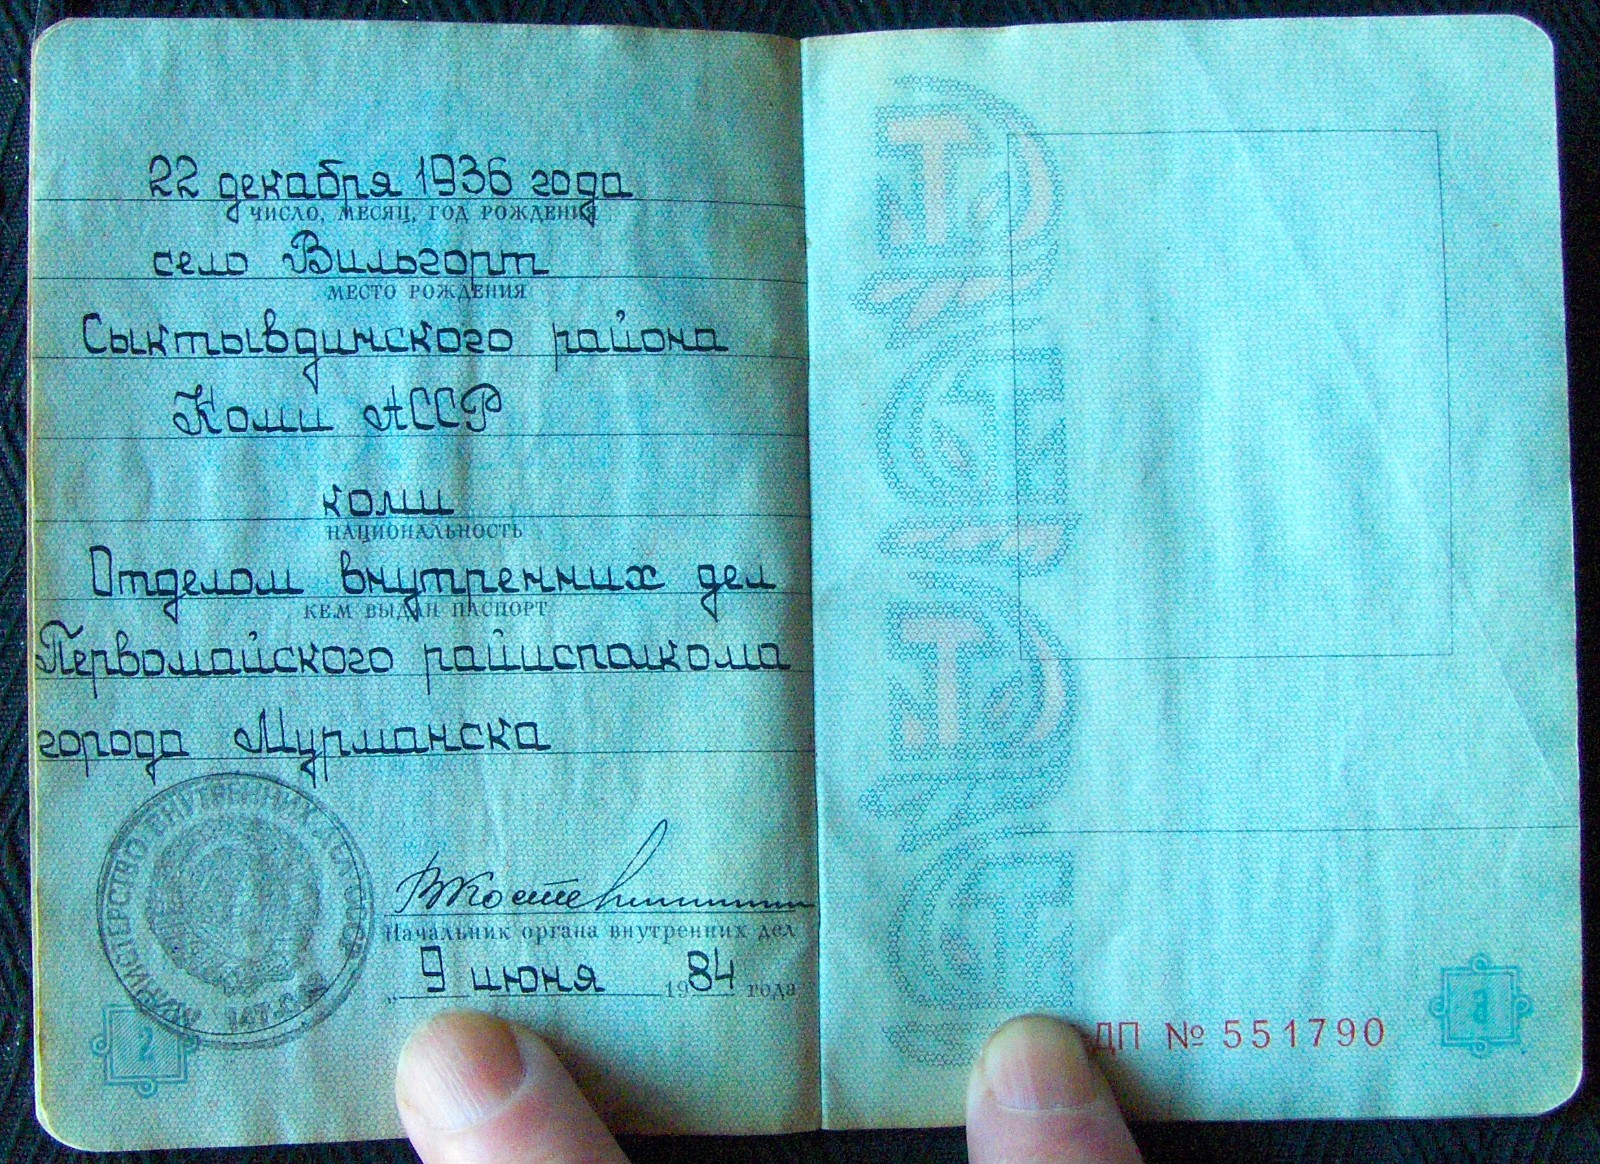 22 декабря 1936 года
ЧИСЛО, МЕСЯЦ, ГОД РОЖДЕНИЯ
село Вильгорт
МЕСТО РОЖДЕНИЯ
Сыктывдинского района
Коми АССР
коми
НАЦИОНАЛЬНОСТЬ
Отделом внутренних дел
КЕМ ВЫДАН ПАСПОРТ
Первомайского райисполкома
города Мурманска
МИНИСТЕРСТВО ВНУТРЕННИХ ДЕЛ СССР
Начальник органа внутренних дел
„ 9 июня 1984 года
2
ДП № 551790